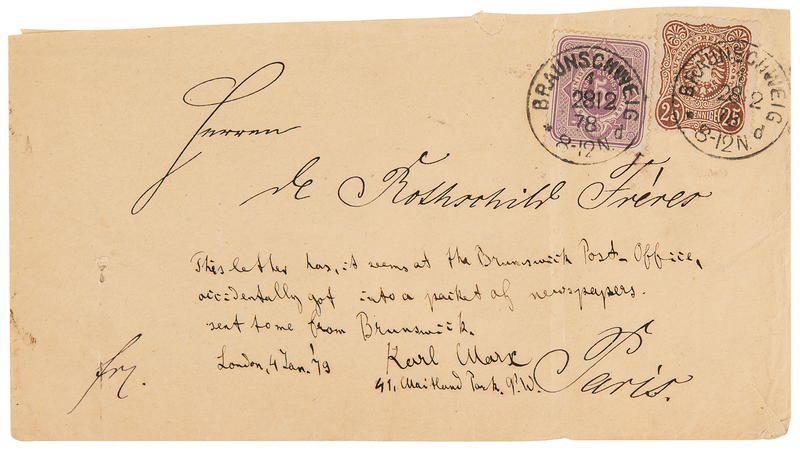 BRAUNSCHWEIG
1
28 12
78
* d
8-12N.
BRAUNSCHWEIG
1
28 2
* d
8-12N.
5
25 PFENNIG 25
Herren
de Rothschild Frères
This letter has, it seems at the Brunswick Post-Office,
accidentally got into a packet of newspapers
sent to me from Brunswick.
London, 4 Jan. '79
Karl Marx
41, Maitland Park. N.W.
frz.
Paris.